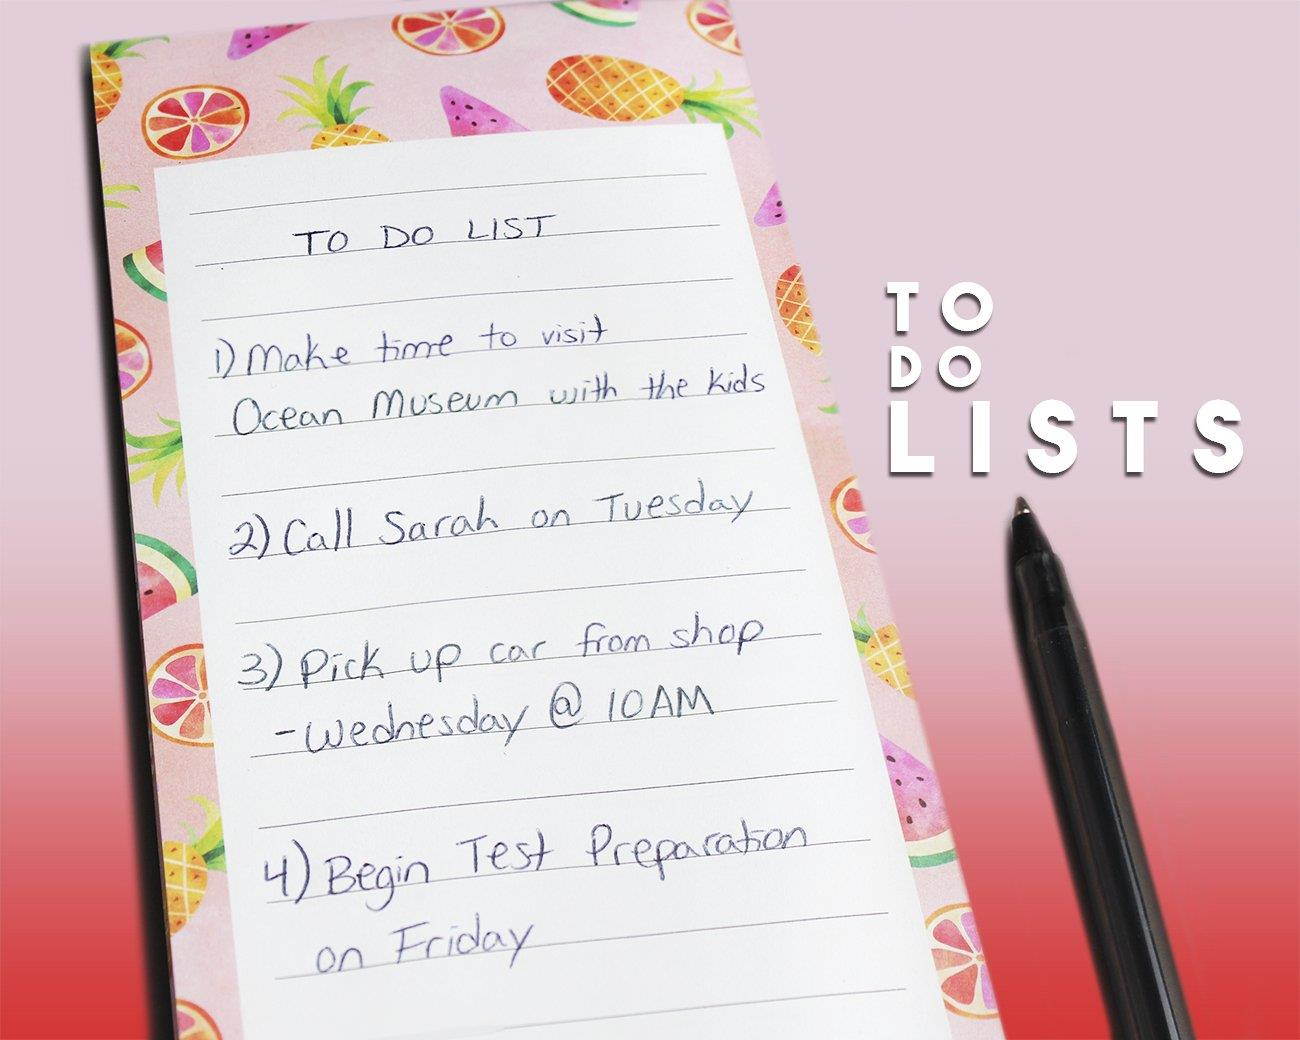 TO DO LIST
1) Make time to visit
Ocean Museum with the kids
2) Call Sarah on Tuesday
3) Pick up car from shop
- Wednesday @ 10AM
4) Begin Test Preparation
on Friday
TO
DO
LISTS